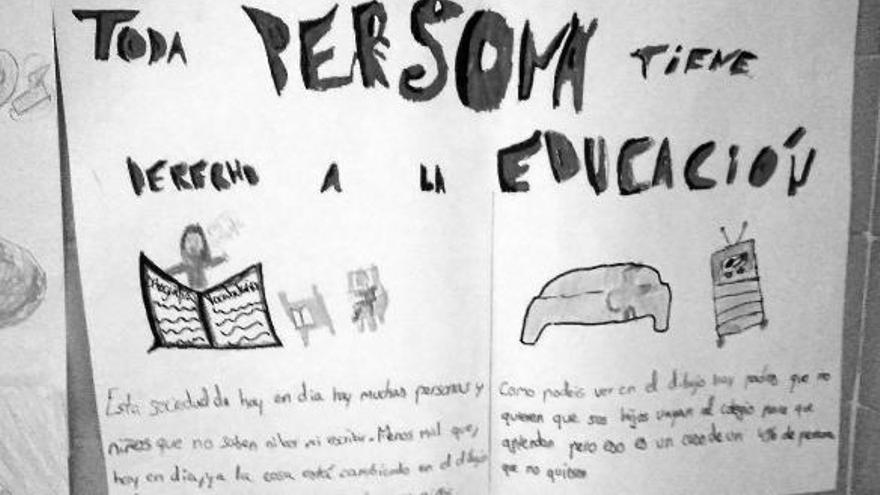 TODA PERSONA TIENE
DERECHO A LA EDUCACIÓN
Ortografía Vocabulario
Esta sociedad de hoy en dia hay muchas personas y
niños que no saben ni leer ni escribir. Menos mal que,
hoy en dia, ya la cosa está cambiando en el dibujo
Como podeis ver en el dibujo hay padres que no
quieren que sus hijos vayan al colegio para que
aprendan pero eso es un caso de un 45% de personas
que no quieren